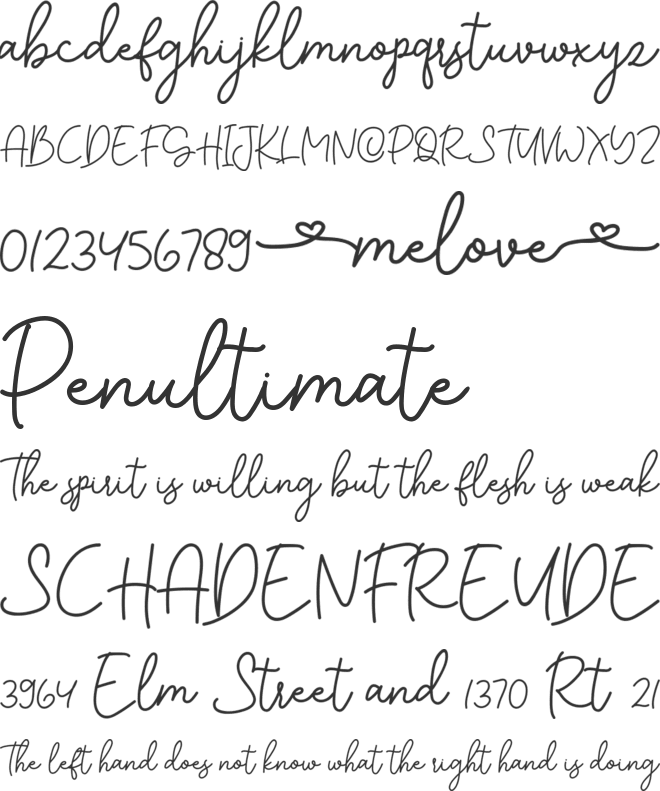 abcdefghijklmnopqrstuvwxyz
ABCDEFGHIJKLMNOPQRSTUVWXYZ
0123456789 melove
Penultimate
The spirit is willing but the flesh is weak
SCHADENFREUDE
3964 Elm Street and 1370 Rt 21
The left hand does not know what the right hand is doing